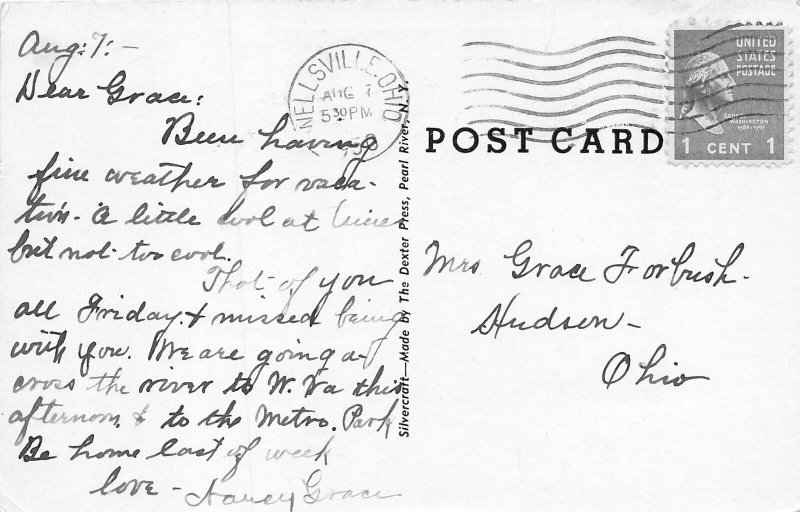 Aug. 7. -
Dear Grace:
Been having
fine weather for vaca-
tion. A little cool at times
but not too cool.
Thot of you
all Friday & missed being
with you. We are going a-
cross the river to W. Va this
afternoon & to the Metro. Park
Be home last of week
love -
Nancy Grace
WELLSVILLE, OHIO
AUG 7
5 30 PM
Silvercraft—Made by The Dexter Press, Pearl River, N. Y.
POST CARD
UNITED
STATES
POSTAGE
GEORGE
WASHINGTON
1789-1797
1 CENT 1
Mrs Grace Forbush.
Hudson -
Ohio